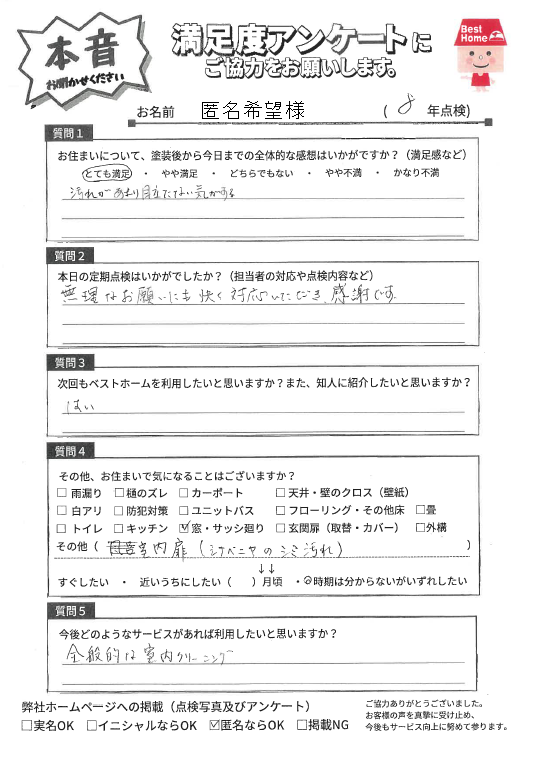 本音
お聞かせください
満足度アンケートに
ご協力をお願いします。
Best Home
お名前 匿名希望様 ( 8 年点検)
質問1
お住まいについて、塗装後から今日までの全体的な感想はいかがですか？（満足感など）
とても満足 ・ やや満足 ・ どちらでもない ・ やや不満 ・ かなり不満
汚れがあまり目立たない気がする
質問2
本日の定期点検はいかがでしたか？（担当者の対応や点検内容など）
無理なお願いにも快く対応いただき、感謝です
質問3
次回もベストホームを利用したいと思いますか？また、知人に紹介したいと思いますか？
はい
質問4
その他、お住まいで気になることはございますか？
□ 雨漏り □ 樋のズレ □ カーポート □ 天井・壁のクロス（壁紙）
□ 白アリ □ 防犯対策 □ ユニットバス □ フローリング・その他床 □ 畳
□ トイレ □ キッチン ☑ 窓・サッシ廻り □ 玄関扉（取替・カバー） □ 外構
その他（ 室内扉 ( のシミ汚れ) ）
↓↓
すぐしたい ・ 近いうちにしたい（ ）月頃 ・ 時期は分からないがいずれしたい
質問5
今後どのようなサービスがあれば利用したいと思いますか？
全般的な室内クリーニング
弊社ホームページへの掲載（点検写真及びアンケート）
□実名OK □イニシャルならOK ☑匿名ならOK □掲載NG
ご協力ありがとうございました。
お客様の声を真摯に受け止め、
今後もサービス向上に努めて参ります。